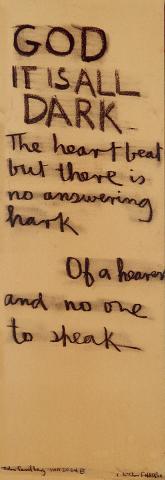 GOD
IT IS ALL
DARK
The heart beat
but there is
no answering
hark
Of a hearer
and no one
to speak